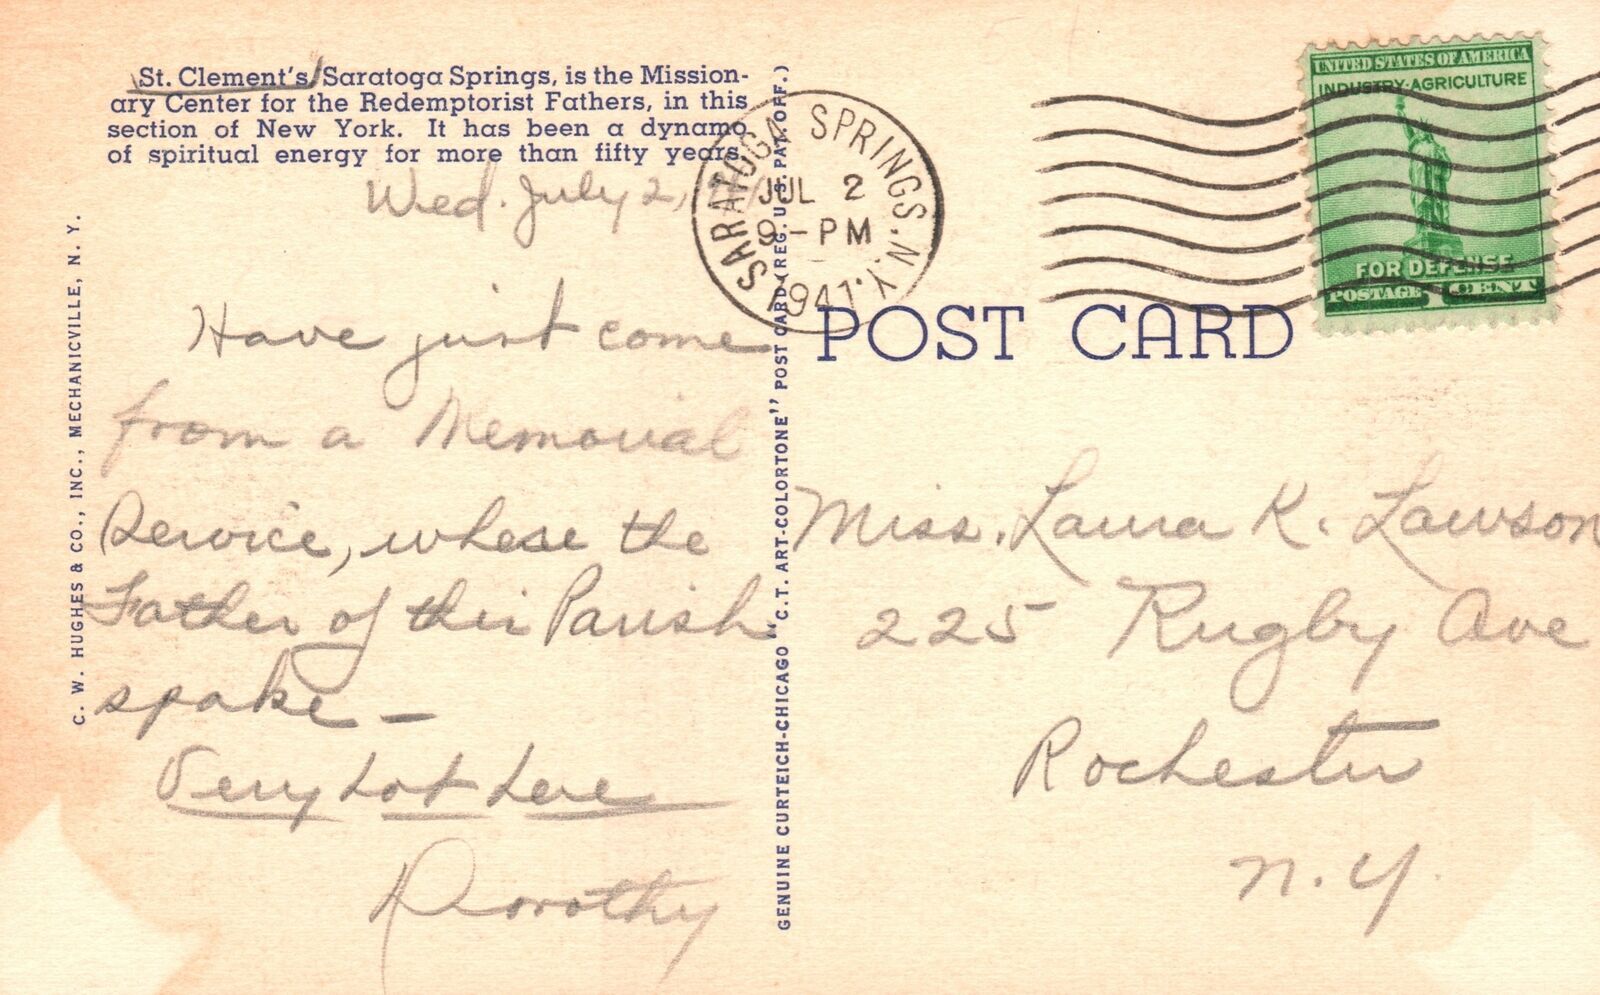 St. Clement's, Saratoga Springs, is the Mission-
ary Center for the Redemptorist Fathers, in this
section of New York. It has been a dynamo
of spiritual energy for more than fifty years.
Wed. July 2,
Have just come
from a Memorial
Service, where the
Father of this Parish
spoke —
Very hot here
Dorothy
C. W. HUGHES & CO., INC., MECHANICVILLE, N. Y.
GENUINE CURTEICH-CHICAGO "C.T. ART-COLORTONE" POST CARD (REG. U.S. PAT. OFF.)
SARATOGA SPRINGS. N.Y.
JUL 2
9 - PM
1941
POST CARD
UNITED STATES OF AMERICA
INDUSTRY-AGRICULTURE
FOR DEFENSE
POSTAGE 1 CENT
Miss. Laura K. Lawson
225 Rugby Ave
Rochester
N.Y.